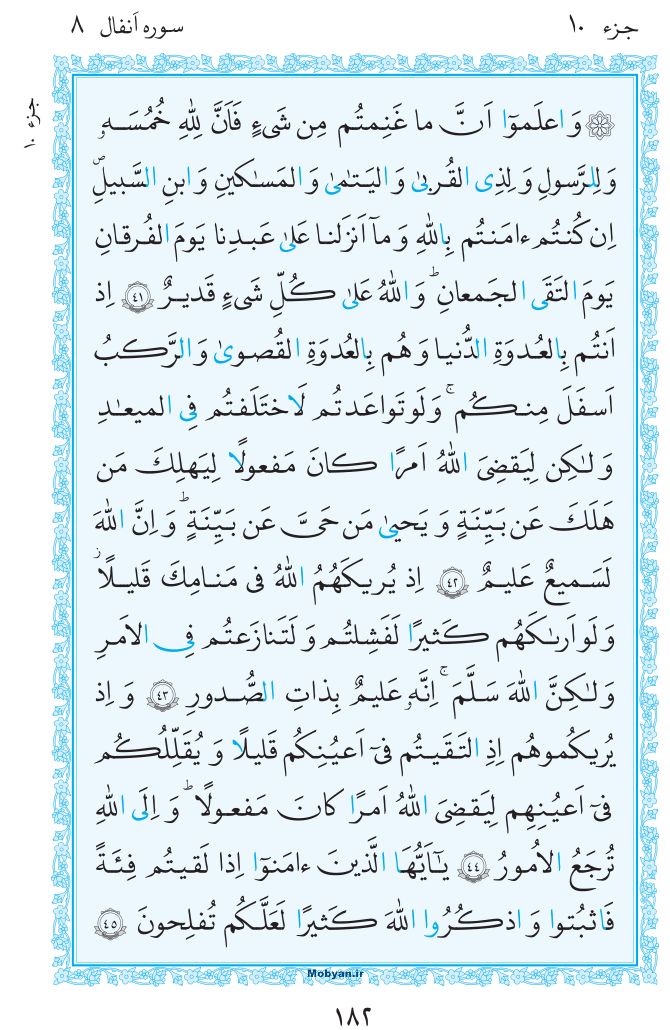 جزء ۱۰
سوره اَنفال ۸
جزء ۱۰
۞ وَ اعلَموٓا اَنَّ ما غَنِمتُم مِن شَیءٍ فَاَنَّ لِلّٰهِ خُمُسَهٗ
وَ لِلرَّسولِ وَ لِذِی القُربیٰ وَ الیَتٰمیٰ وَ المَسٰکینِ وَ ابنِ السَّبیلِ
اِن کُنتُم ءامَنتُم بِاللّٰهِ وَ مآ اَنزَلنا عَلیٰ عَبدِنا یَومَ الفُرقانِ
یَومَ التَقَی الجَمعانِ ۗ وَ اللّٰهُ عَلیٰ کُلِّ شَیءٍ قَدیرٌ ﴿٤١﴾ اِذ
اَنتُم بِالعُدوَةِ الدُّنیا وَ هُم بِالعُدوَةِ القُصویٰ وَ الرَّکبُ
اَسفَلَ مِنکُم ۚ وَ لَو تَواعَدتُم لَاختَلَفتُم فِی المیعٰدِ
وَ لٰکِن لِیَقضِیَ اللّٰهُ اَمرًا کانَ مَفعولًا لِیَهلِکَ مَن
هَلَکَ عَن بَیِّنَةٍ وَ یَحییٰ مَن حَیَّ عَن بَیِّنَةٍ ۗ وَ اِنَّ اللّٰهَ
لَسَمیعٌ عَلیمٌ ﴿٤٢﴾ اِذ یُریکَهُمُ اللّٰهُ فی مَنامِکَ قَلیلًا ۖ
وَ لَو اَرىٰکَهُم کَثیرًا لَفَشِلتُم وَ لَتَنازَعتُم فِی الاَمرِ
وَ لٰکِنَّ اللّٰهَ سَلَّمَ ۚ اِنَّهٗ عَلیمٌ بِذاتِ الصُّدورِ ﴿٤٣﴾ وَ اِذ
یُریکُموهُم اِذِ التَقَیتُم فیٓ اَعیُنِکُم قَلیلًا وَ یُقَلِّلُکُم
فیٓ اَعیُنِهِم لِیَقضِیَ اللّٰهُ اَمرًا کانَ مَفعولًا ۗ وَ اِلَی اللّٰهِ
تُرجَعُ الاُمورُ ﴿٤٤﴾ یٰٓاَیُّهَا الَّذینَ ءامَنوٓا اِذا لَقیتُم فِئَةً
فَاثبُتوا وَ اذکُرُوا اللّٰهَ کَثیرًا لَعَلَّکُم تُفلِحونَ ﴿٤٥﴾
Mobyan.ir
۱۸۲